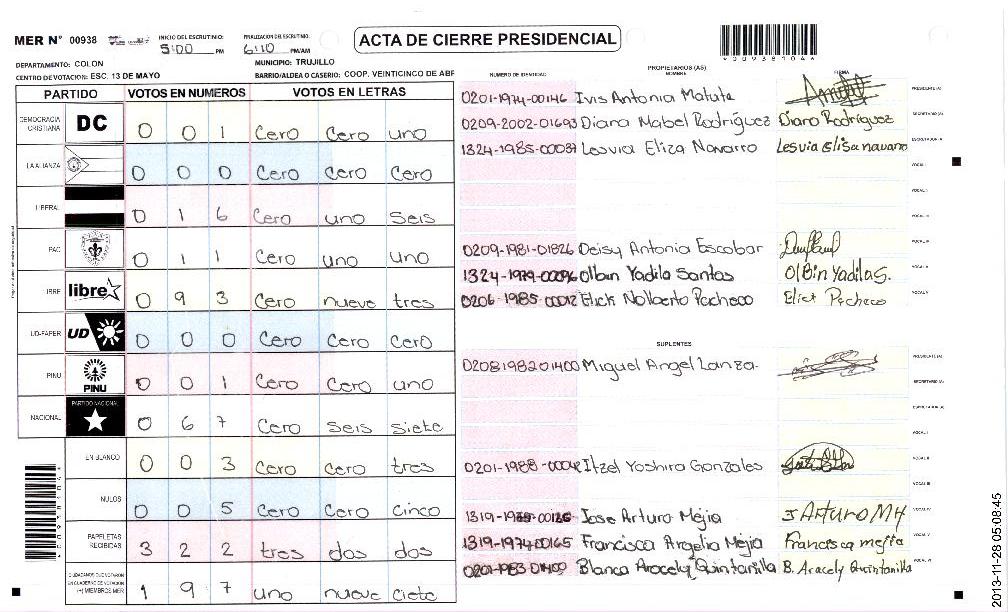 MER N° 00938
INICIO DEL ESCRUTINIO: 5:00 PM
FINALIZACION DEL ESCRUTINIO: 6:10 PM/AM
ACTA DE CIERRE PRESIDENCIAL
*009381046*
DEPARTAMENTO: COLON
MUNICIPIO: TRUJILLO
CENTRO DE VOTACION: ESC. 13 DE MAYO
BARRIO/ALDEA O CASERIO: COOP. VEINTICINCO DE ABR
PARTIDO VOTOS EN NUMEROS VOTOS EN LETRAS
DEMOCRACIA CRISTIANA DC 0 0 1 Cero Cero uno
LA ALIANZA 0 0 0 Cero Cero Cero
LIBERAL 0 1 6 Cero uno Seis
PAC 0 1 1 Cero uno uno
LIBRE libre 0 9 3 Cero nueve tres
UD-FAPER UD 0 0 0 Cero Cero Cero
PINU PINU 0 0 1 Cero Cero uno
NACIONAL PARTIDO NACIONAL 0 6 7 Cero Seis Siete
EN BLANCO 0 0 3 Cero Cero tres
NULOS 0 0 5 Cero Cero Cinco
PAPELETAS RECIBIDAS 3 2 2 tres dos dos
CIUDADANOS QUE VOTARON EN CUADERNO DE VOTACION (+) MIEMBROS MER 1 9 7 uno nueve ciete
PROPIETARIOS (AS)
NUMERO DE IDENTIDAD NOMBRE FIRMA
0201-1974-00146 Ivis Antonia Matute PRESIDENTE (A)
0209-2002-01693 Diana Mabel Rodríguez Diana Rodríguez SECRETARIO (A)
1324-1985-00037 Lesvia Eliza Navarro Lesvia Elisa navarro ESCRUTADOR/A
VOCAL I
VOCAL II
VOCAL III
0209-1981-01826 Deisy Antonia Escobar VOCAL IV
1324-1979-00096 Olban Yadila Santos Olbin Yadila S. VOCAL V
0206-1985-00012 Elick Nolberto Pacheco Elict Pacheco VOCAL VI
SUPLENTES
0208198201400 Miguel Angel Lanza. PRESIDENTE (A)
SECRETARIO (A)
ESCRUTADOR (A)
VOCAL I
0201-1988-00042 Itzel Yoshira Gonzales VOCAL II
VOCAL III
Jose Arturo Mejia J Arturo MH VOCAL IV
1319-1974-00165 Francisca Argelia Mejia Francisca mejia VOCAL V
0201-1983-01409 Blanca Aracely Quintanilla B. Aracely Quintanilla VOCAL VI
2013-11-28 05:08:45